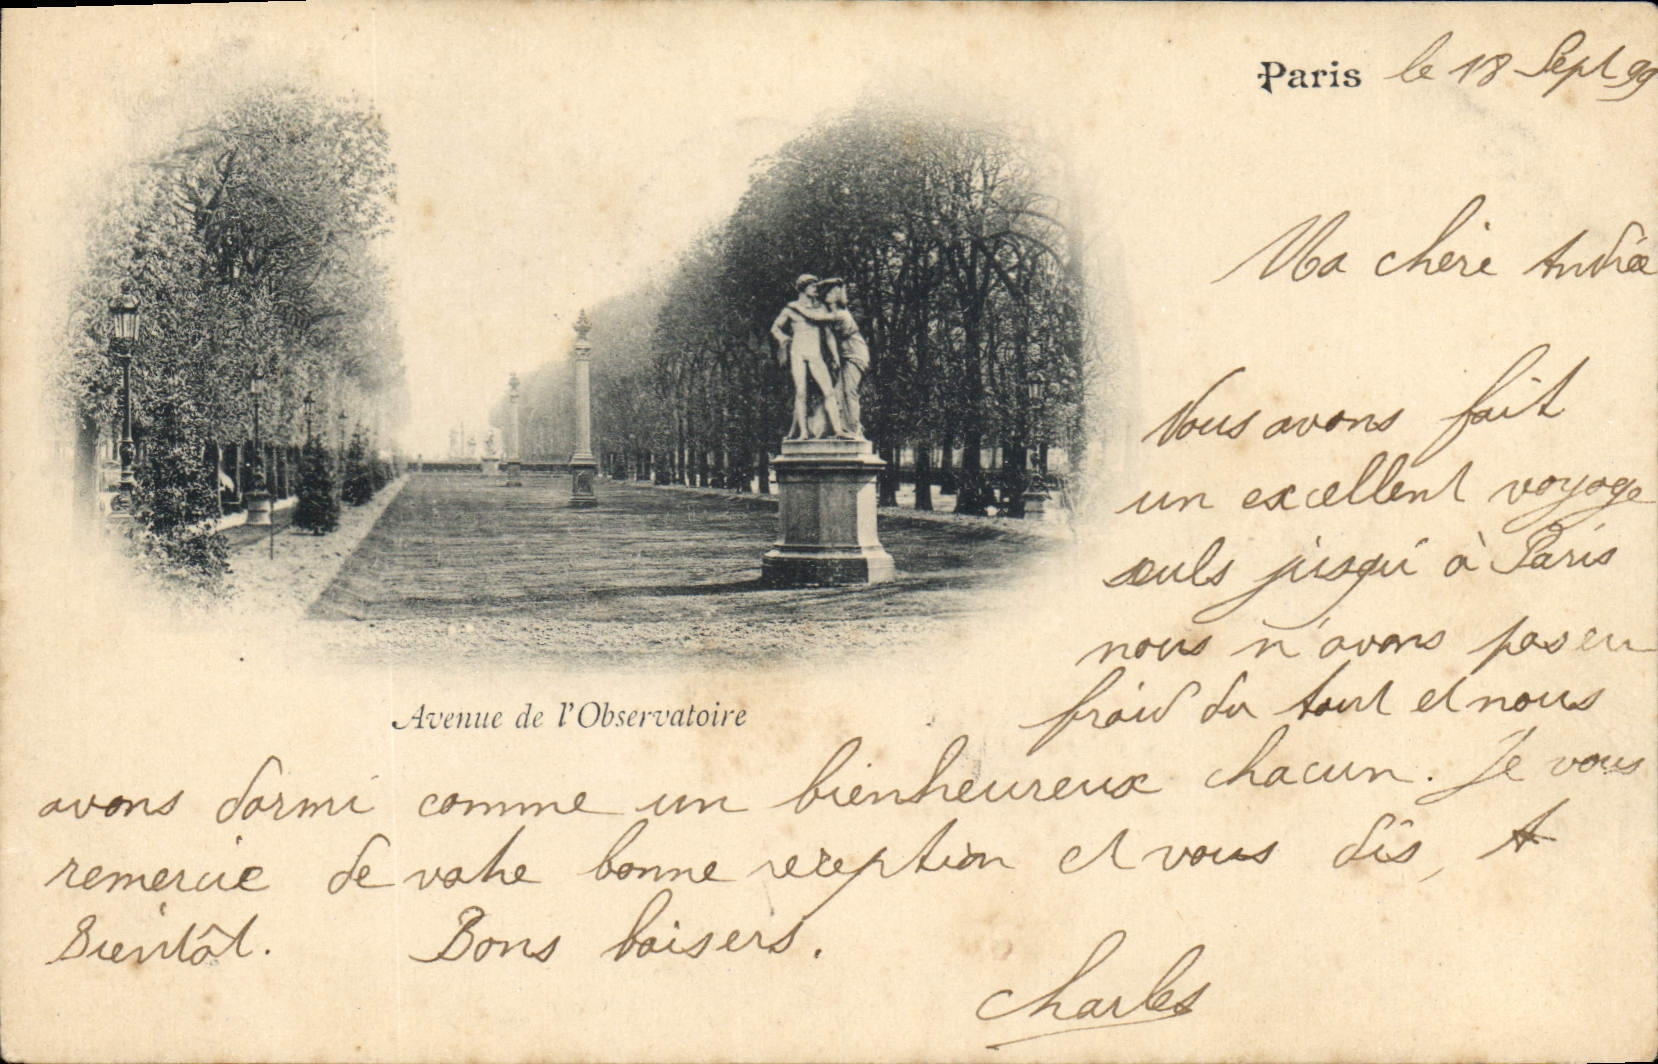 Paris le 18 Sept 99
Ma chère Andrée
Nous avons fait
un excellent voyage
seuls jusqu'à Paris
nous n'avons pas eu
froid du tout et nous
Avenue de l'Observatoire
avons dormi comme un bienheureux chacun. Je vous
remercie de votre bonne réception et vous dis, A
Bientôt. Bons baisers.
Charles